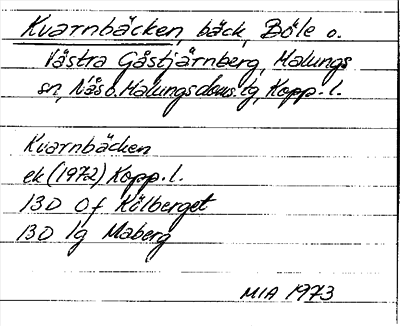 Kvarnbäcken, bäck, Böle o.
Västra Gåstjärnberg, Malungs
sn, Nås o. Malungs doms.lg, Kopp.l.
Kvarnbäcken
ek (1972) Kopp.l.
13D 0f Kölberget
13D 1g Maberg
MIA 1973